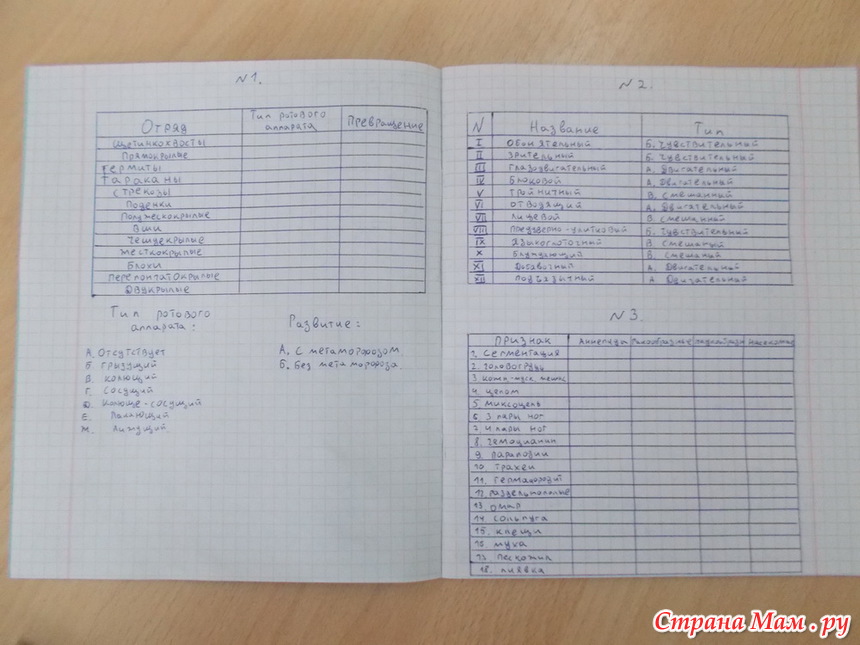 N1.
Отряд Тип ротового аппарата Превращение
Щетинкохвосты
Прямокрылые
Термиты
Тараканы
Стрекозы
Поденки
Полужескокрылые
Вши
Чешуекрылые
Жесткокрылые
Блохи
Перепонтатокрылые
Двукрылые
Тип ротового
аппарата:
А. Отсутствует
Б. Грызущий
В. Колющий
Г. Сосущий
Д. Колюще-сосущий
Е. Лакающий
М. Лижущий.
Развитие:
А. С метаморфозом.
Б. Без метаморфоза.
N2.
N Название Тип
I Обонятельный Б. Чувствительный
II Зрительный Б. Чувствительный
III Глазодвигательный А. Двигательный
IV Блоковой А. Двигательный
V Тройнитный В. Смешанный
VI Отводящий А. Двигательный
VII Лицевой В Смешанный
VIII Преддверно-улитковый Б. Чувствительный
IX Языкоглоточный В Смешаный
X Блуждающий В. Смешаный
XI Добавочный А. Двигательный
XII Подъязычный А Двигательный
N3.
Признак Аннелиды Ракообразные Паукообразн Насекомые
1. Сегментация
2. Головогрудь
3. Кожн-муск мешок
4. Целом
5. Миксоцель
6 3 пары ног
7. 4 пары ног
8. Гемоцианин
9. Параподии
10. Трахеи
11. Гермафродит
12. Раздельнополые
13. Омар
14 Сольпуга
15. Клещи
16. Муха
17. Пескожил
18. Пиявка
Страна Мам.ру